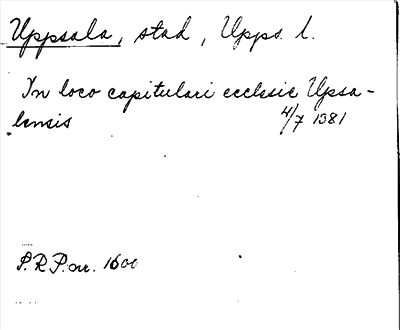 Uppsala, stad, Upps. l.
In loco capitulari ecclesie Upsa-
lensis 4/7 1381
S.R.P. or. 1600